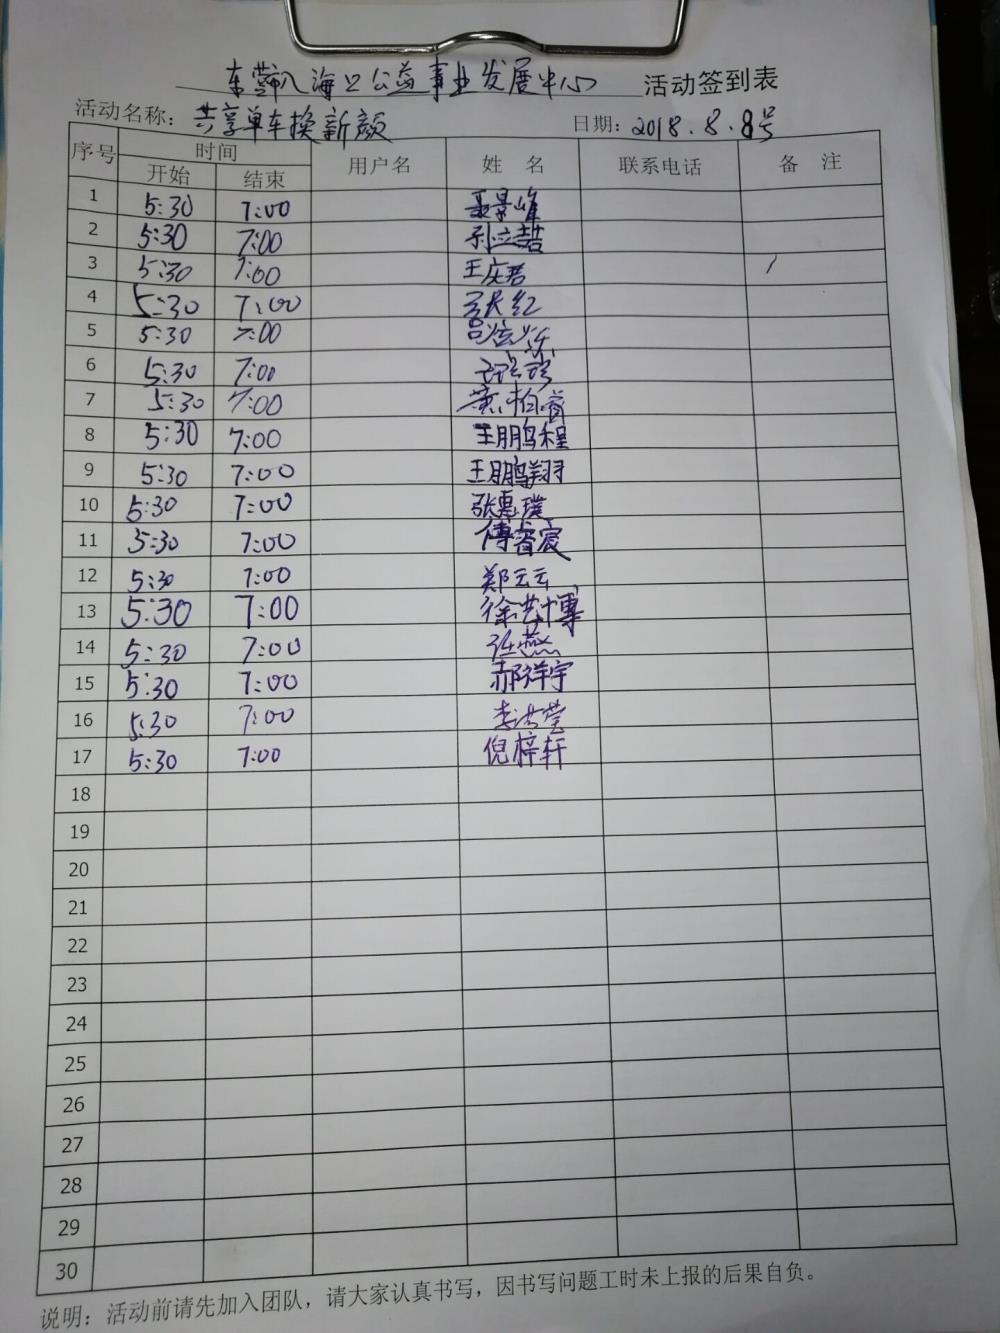 东营入海口公益事业发展中心 活动签到表
活动名称：共享单车换新颜 日期：2018.8.8号
序号 时间 用户名 姓 名 联系电话 备 注
开始 结束
1 5:30 7:00 聂景峰
2 5:30 7:00
3 5:30 7:00 王庆君
4 5:30 7:00 张红
5 5:30 7:00
6 5:30 7:00
7 5:30 7:00 黄柏睿
8 5:30 7:00 王鹏程
9 5:30 7:00 王鹏翔
10 5:30 7:00 张惠璞
11 5:30 7:00 傅睿宸
12 5:30 7:00 郑云云
13 5:30 7:00 徐艺博
14 5:30 7:00 任燕
15 5:30 7:00 郝祥宇
16 5:30 7:00
17 5:30 7:00 倪梓轩
18
19
20
21
22
23
24
25
26
27
28
29
30
说明：活动前请先加入团队，请大家认真书写，因书写问题工时未上报的后果自负。